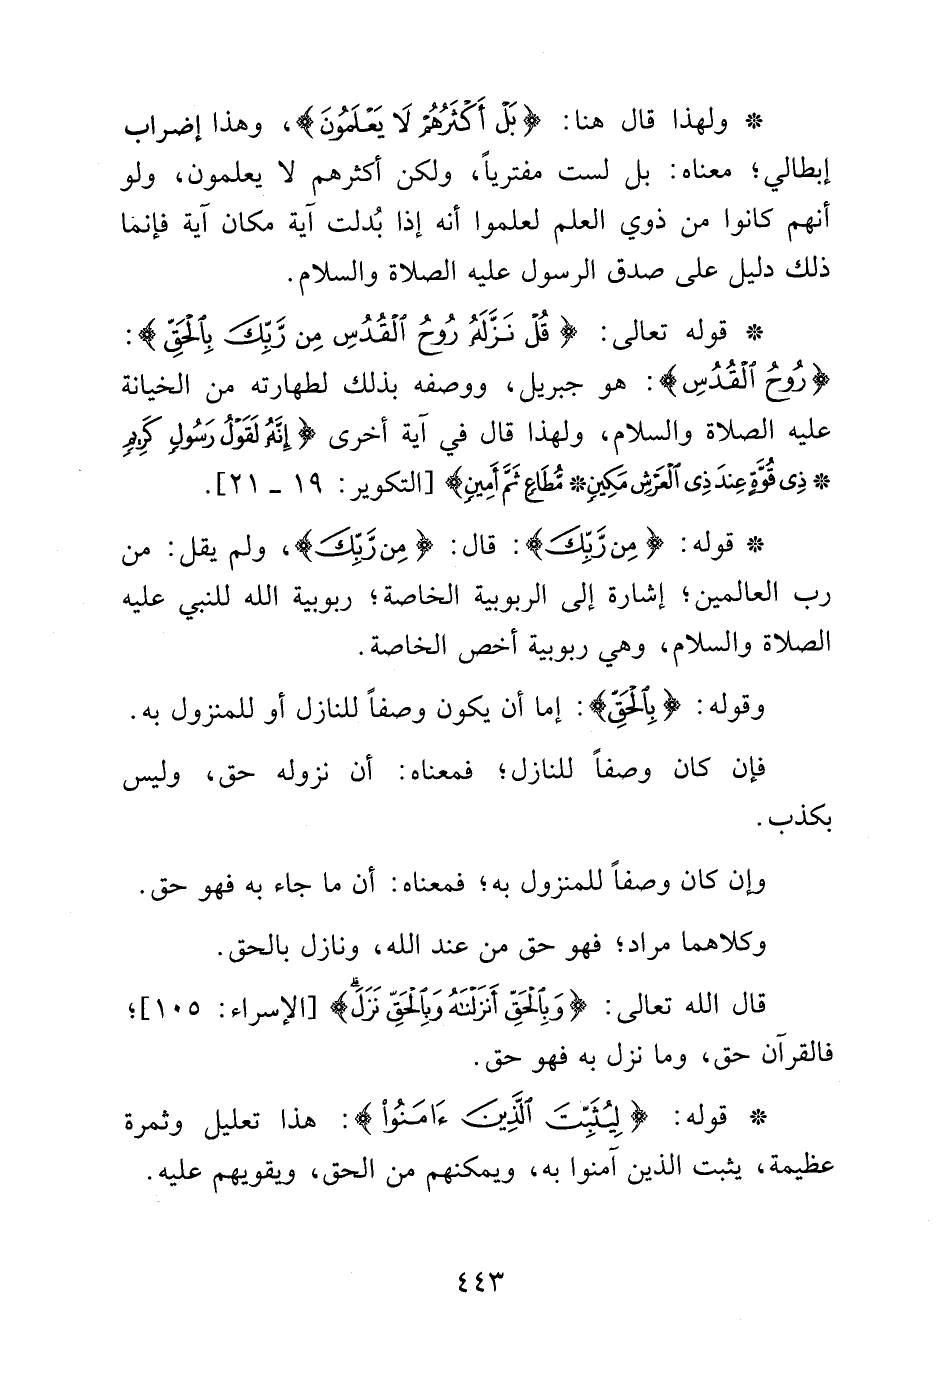 * ولهذا قال هنا: ﴿بَلْ أَكْثَرُهُمْ لَا يَعْلَمُونَ﴾، وهذا إضراب
إبطالي؛ معناه: بل لست مفترياً، ولكن أكثرهم لا يعلمون، ولو
أنهم كانوا من ذوي العلم لعلموا أنه إذا بُدلت آية مكان آية فإنما
ذلك دليل على صدق الرسول عليه الصلاة والسلام.
* قوله تعالى: ﴿قُلْ نَزَّلَهُ رُوحُ ٱلْقُدُسِ مِن رَّبِّكَ بِٱلْحَقِّ﴾:
﴿رُوحُ ٱلْقُدُسِ﴾: هو جبريل، ووصفه بذلك لطهارته من الخيانة
عليه الصلاة والسلام، ولهذا قال في آية أخرى ﴿إِنَّهُ لَقَوْلُ رَسُولٍ كَرِيمٍ
* ذِى قُوَّةٍ عِندَ ذِى ٱلْعَرْشِ مَكِينٍ * مُّطَاعٍ ثَمَّ أَمِينٍ﴾ [التكوير: ١٩ ـ ٢١].
* قوله: ﴿مِن رَّبِّكَ﴾: قال: ﴿مِن رَّبِّكَ﴾، ولم يقل: من
رب العالمين؛ إشارة إلى الربوبية الخاصة؛ ربوبية الله للنبي عليه
الصلاة والسلام، وهي ربوبية أخص الخاصة.
وقوله: ﴿بِٱلْحَقِّ﴾: إما أن يكون وصفاً للنازل أو للمنزول به.
فإن كان وصفاً للنازل؛ فمعناه: أن نزوله حق، وليس
بكذب.
وإن كان وصفاً للمنزول به؛ فمعناه: أن ما جاء به فهو حق.
وكلاهما مراد؛ فهو حق من عند الله، ونازل بالحق.
قال الله تعالى: ﴿وَبِٱلْحَقِّ أَنزَلْنَٰهُ وَبِٱلْحَقِّ نَزَلَۗ﴾ [الإسراء: ١٠٥]؛
فالقرآن حق، وما نزل به فهو حق.
* قوله: ﴿لِيُثَبِّتَ ٱلَّذِينَ ءَامَنُوا۟﴾: هذا تعليل وثمرة
عظيمة، يثبت الذين آمنوا به، ويمكنهم من الحق، ويقويهم عليه.
٤٤٣